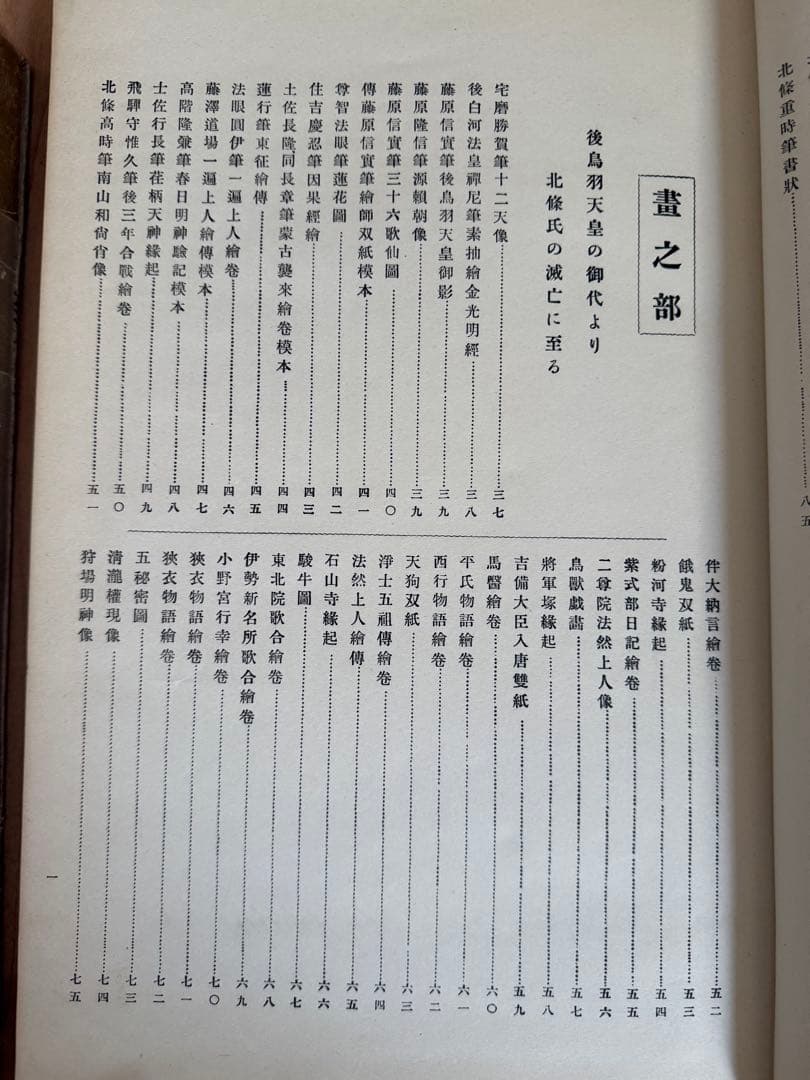 北條重時筆書狀……八五
畫之部
後鳥羽天皇の御代より
北條氏の滅亡に至る
宅磨勝賀筆十二天像……三七
後白河法皇禪尼筆素抽繪金光明經……三八
藤原信實筆後鳥羽天皇御影……三九
藤原隆信筆源賴朝像……三九
藤原信實筆三十六歌仙圖……四〇
傳藤原信實筆繪師双紙模本……四一
尊智法眼筆蓮花圖……四二
住吉慶忍筆因果經繪……四三
土佐長隆同長章筆蒙古襲來繪卷模本……四四
蓮行筆東征繪傳……四五
法眼圓伊筆一遍上人繪卷……四六
藤澤道場一遍上人繪傳模本……四七
高階隆兼筆春日明神驗記模本……四八
土佐行長筆荏柄天神緣起……四九
飛驒守惟久筆後三年合戰繪卷……五〇
北條高時筆南山和尙肖像……五一
伴大納言繪卷……五二
餓鬼双紙……五三
粉河寺緣起……五四
紫式部日記繪卷……五五
二尊院法然上人像……五六
鳥獸戲畫……五七
將軍塚緣起……五八
吉備大臣入唐雙紙……五九
馬醫繪卷……六〇
平氏物語繪卷……六一
西行物語繪卷……六二
天狗双紙……六三
淨士五祖傳繪卷……六四
法然上人繪傳……六五
石山寺緣起……六六
駿牛圖……六七
東北院歌合繪卷……六八
伊勢新名所歌合繪卷……六九
小野宮行幸繪卷……七〇
狹衣物語繪卷……七一
狹衣物語繪卷……七二
五秘密圖……七三
清瀧權現像……七四
狩場明神像……七五
一